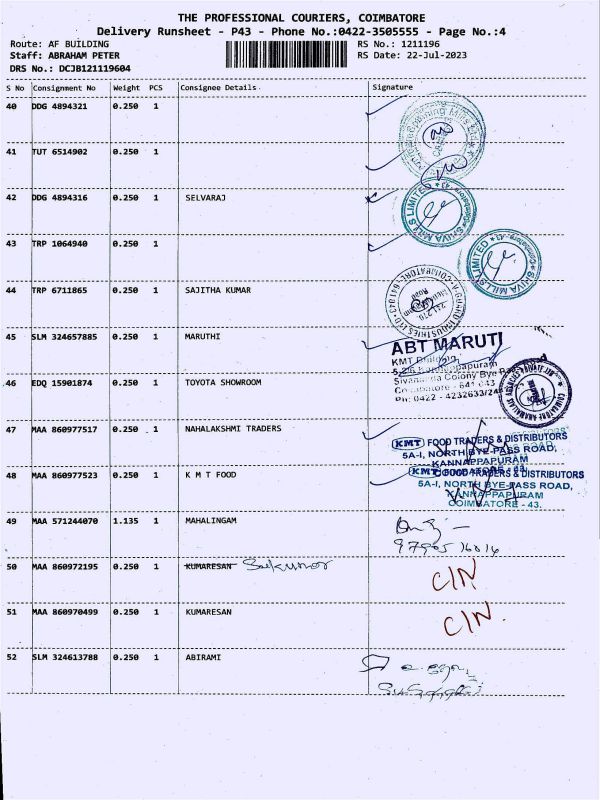 THE PROFESSIONAL COURIERS, COIMBATORE
Delivery Runsheet - P43 - Phone No.:0422-3505555 - Page No.:4
Route: AF BUILDING
RS No.: 1211196
Staff: ABRAHAM PETER
RS Date: 22-Jul-2023
DRS No.: DCJB121119604
S No Consignment No Weight PCS Consignee Details Signature
40 DDG 4894321 0.250 1
41 TUT 6514902 0.250 1
42 DDG 4894316 0.250 1 SELVARAJ
SHIVA MILLS LIMITED
43 TRP 1064940 0.250 1
SHIVA MILLS LIMITED
44 TRP 6711865 0.250 1 SAJITHA KUMAR
45 SLM 324657885 0.250 1 MARUTHI
ABT MARUTI
KMT Building
Sivananda Colony Bye
Coimbatore - 641 043
Ph: 0422 - 4232633/24
46 EDQ 15901874 0.250 1 TOYOTA SHOWROOM
47 MAA 860977517 0.250 1 NAHALAKSHMI TRADERS
KMT FOOD TRADERS & DISTRIBUTORS
5A-I, NORTH BYE-PASS ROAD,
KANNAPPAPURAM
48 MAA 860977523 0.250 1 K M T FOOD
KMT FOOD TRADERS & DISTRIBUTORS
5A-I, NORTH BYE-PASS ROAD,
KANNAPPAPURAM
COIMBATORE - 43.
49 MAA 571244070 1.135 1 MAHALINGAM
50 MAA 860972195 0.250 1 KUMARESAN
C/N
51 MAA 860970499 0.250 1 KUMARESAN
C/N.
52 SLM 324613788 0.250 1 ABIRAMI